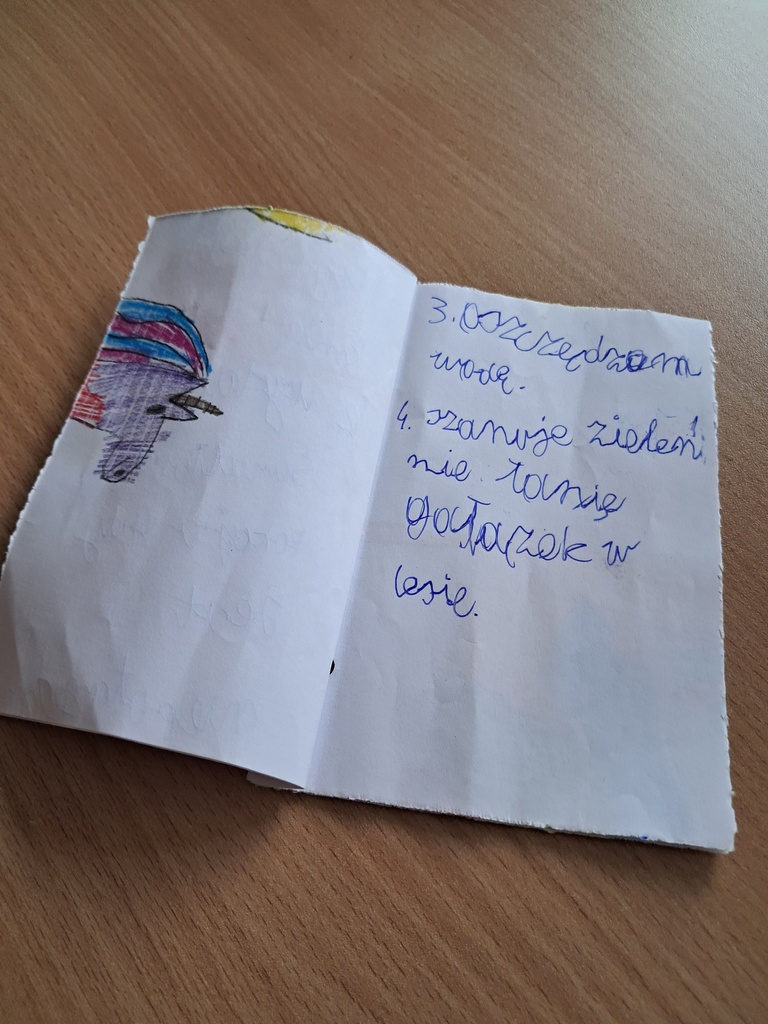 3. oszczędzam
wodę.
4. szanuje zieleń
nie łamię
gałązek w
lesię.